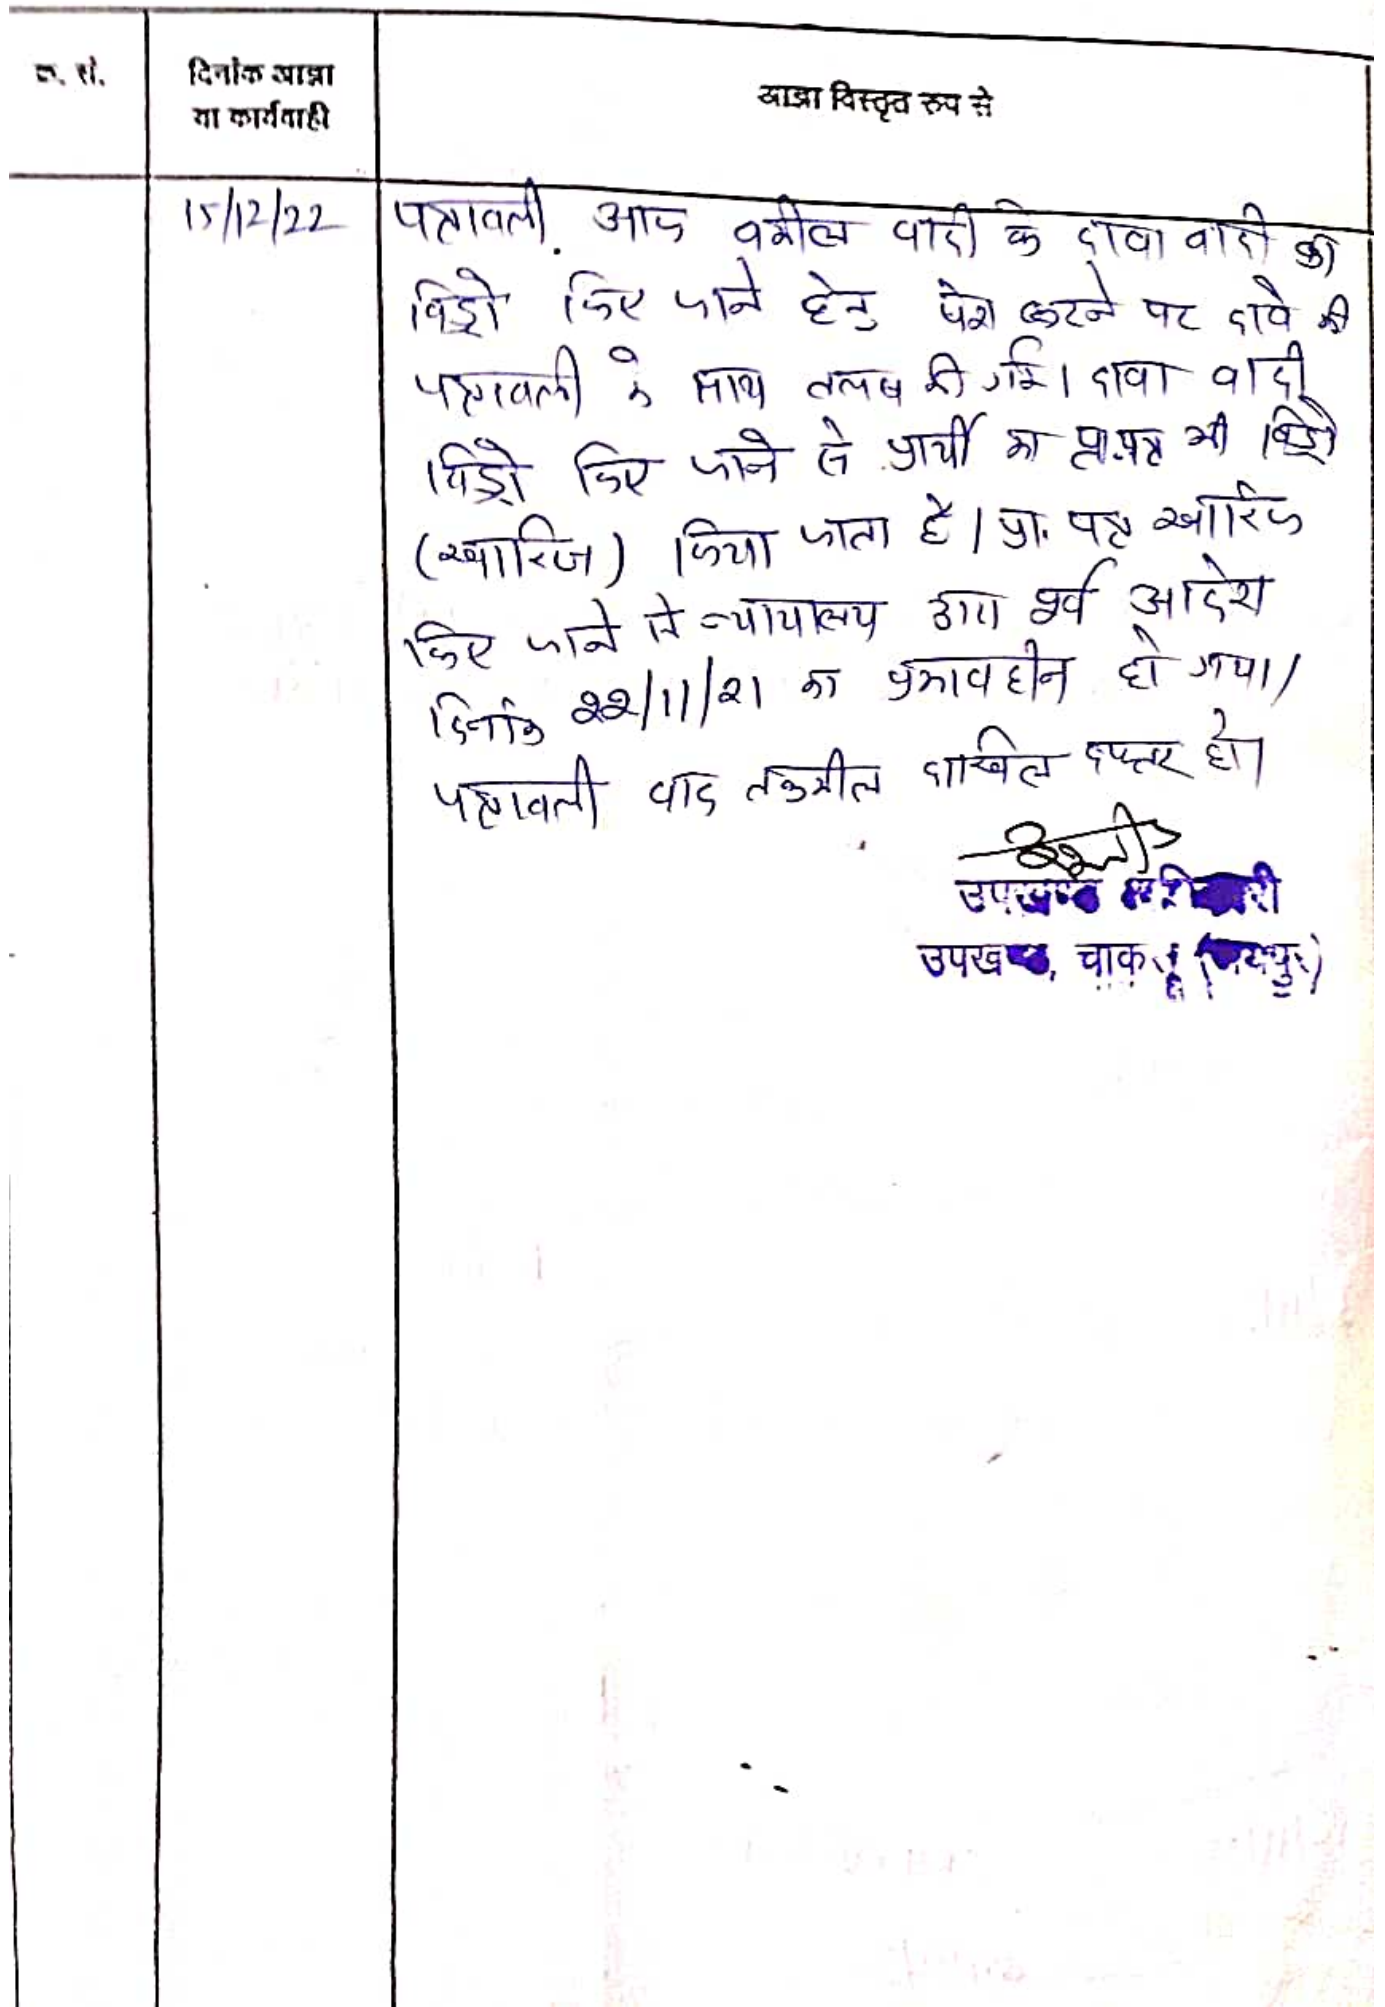 क्र. सं.
दिनांक आज्ञा
या कार्यवाही
आज्ञा विस्तृत रूप से
15/12/22
पत्रावली. आज वकील वादी के दावा वादी को
विड्रो किए जाने हेतु पेश करने पर दावे की
पत्रावली के साथ तलब की गई। दावा वादी
विड्रो किए जाने से प्रार्थी का प्रा.पत्र भी विड्रो
(खारिज) किया जाता है। प्रा. पत्र खारिज
किए जाने से न्यायालय द्वारा पूर्व आदेश
दिनांक 22/11/21 का प्रभावहीन हो गया।
पत्रावली बाद तकमील दाखिल दफ्तर हो।
उपखण्ड अधिकारी
उपखण्ड, चाकसू (जयपुर)